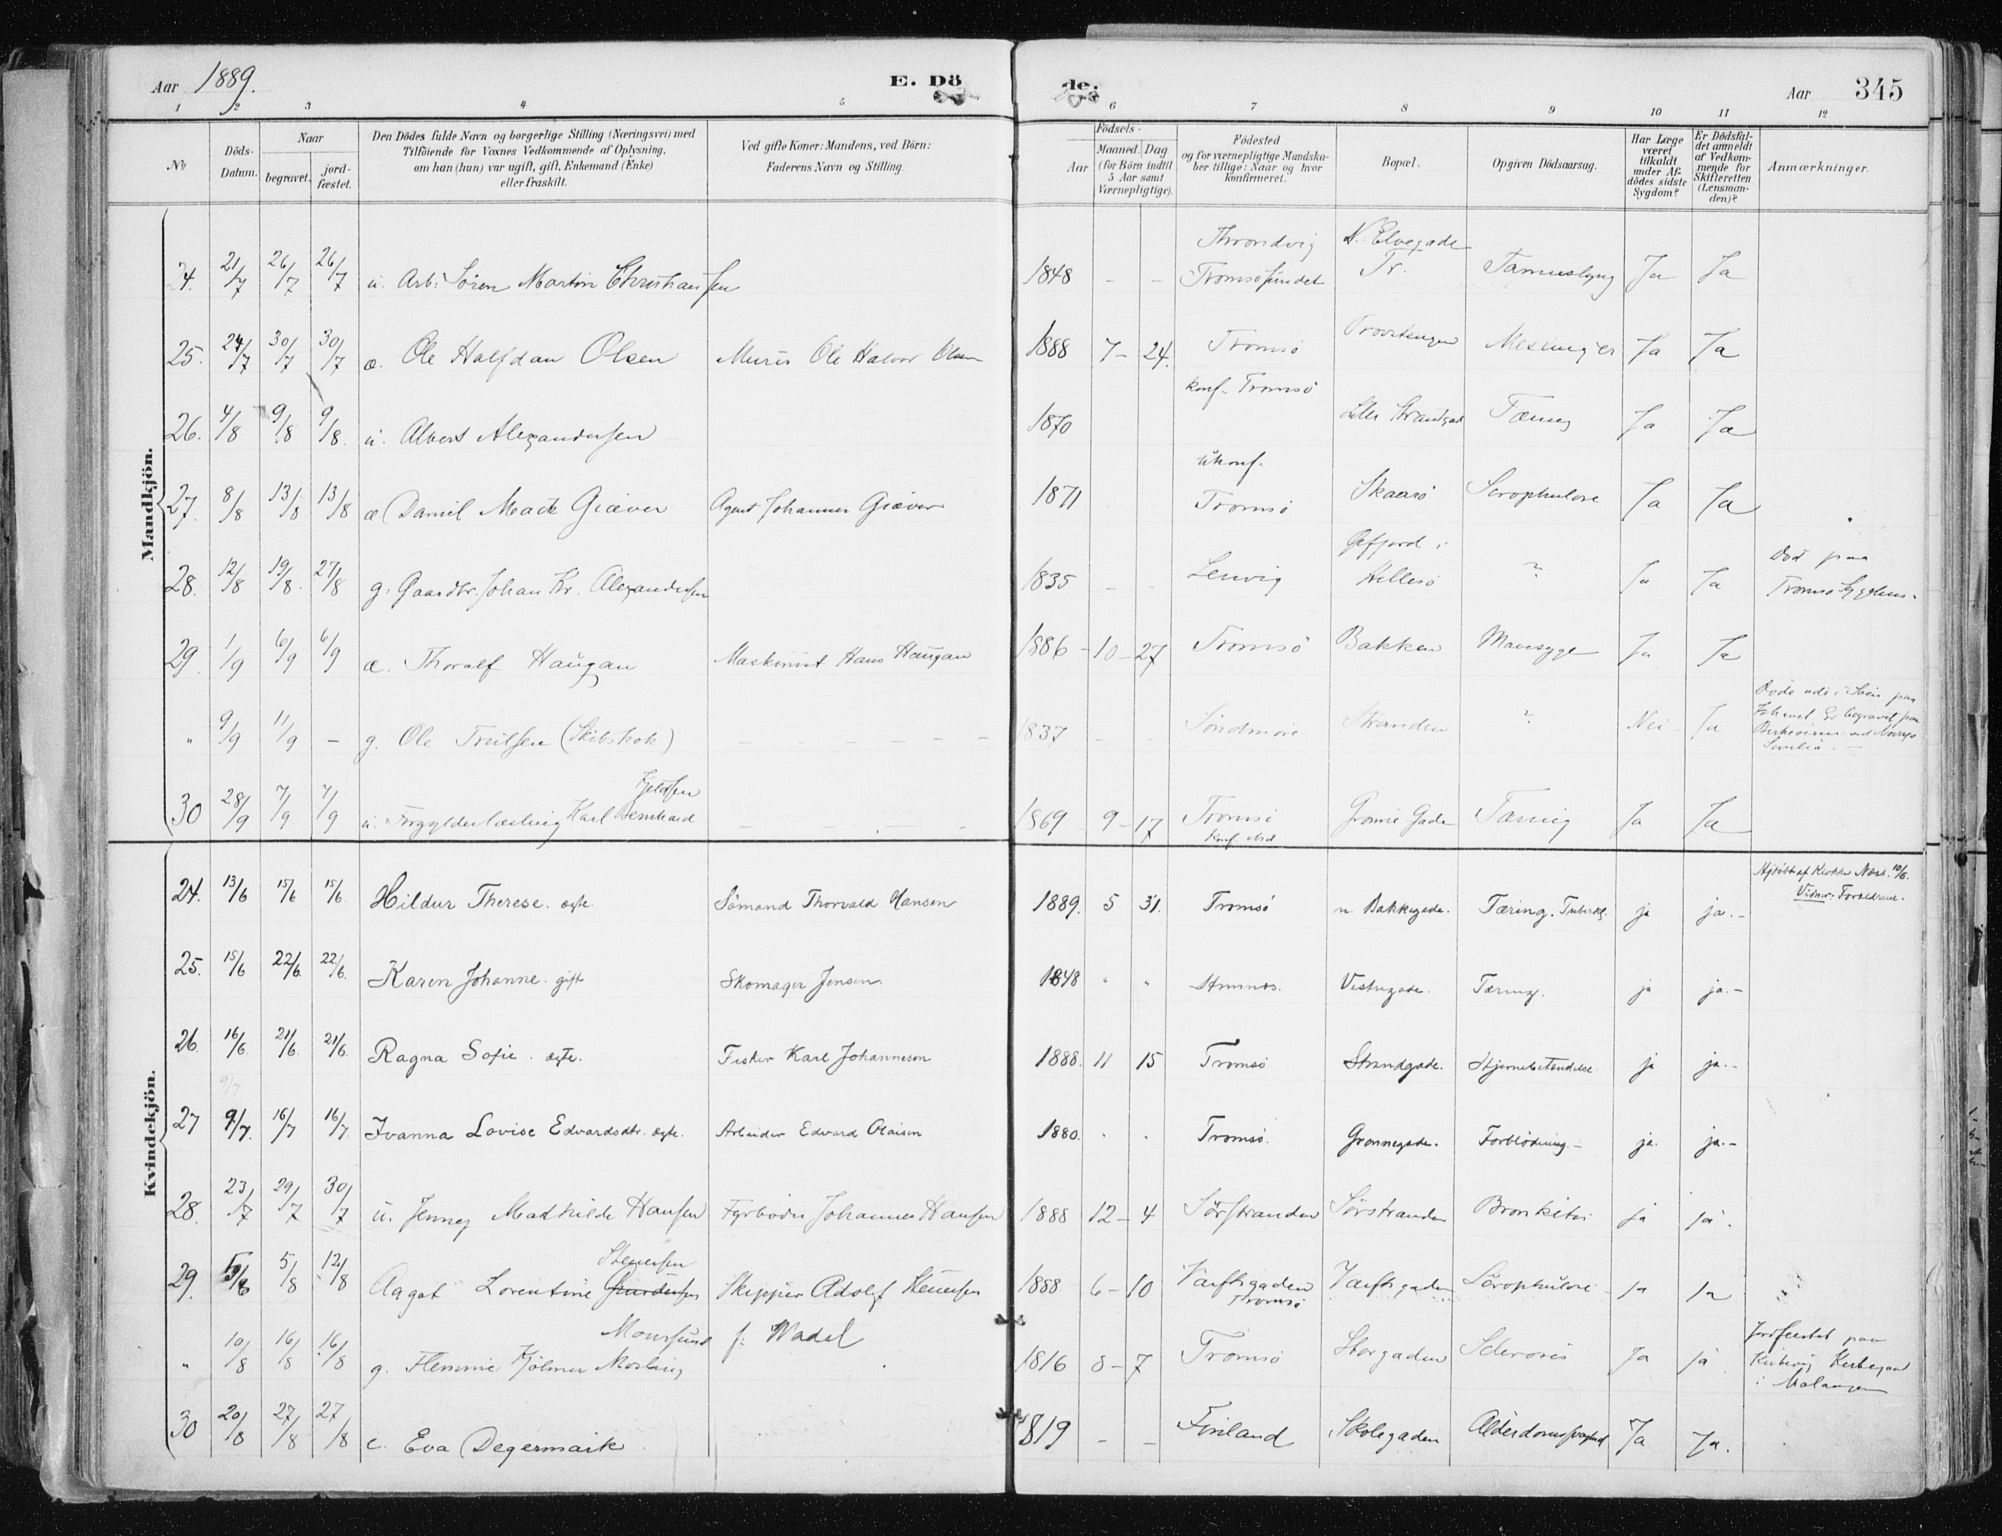 Aar 1889. E. Döde. Aar 345
1 2 3 4 5 6 7 8 9 10 11 12
№ Döds-Datum. Naar begravet. jordfæstet. Den Dödes fulde Navn og borgerlige Stilling (Næringsvei) med Tilföiende for Voxnes Vedkommende af Oplysning, om han (hun) var ugift, gift, Enkemand (Enke) eller fraskilt. Ved gifte Koner: Mandens, ved Börn: Faderens Navn og Stilling. Födsels- Aar Maaned. Dag (for Börn indtil 5 Aar samt Værnepligtige). Födested og for værnepligtige Mandskaber tillige: Naar og hvor konfirmeret. Bopæl. Opgiven Dödsaarsag. Har Læge været tilkaldt under Afdödes sidste Sygdom? Er Dödsfaldet anmeldt af Vedkommende for Skifteretten (Lensmanden)? Anmærkninger.
Mandkjön.
24. 21/7 26/7 26/7 u. Arb: Sören Martin Christiansen 1848 - - Throndvig Tromsösundet N. Elvegade Tr. Ja Ja
25. 24/7 30/7 30/7 æ. Ole Halfdan Olsen Murer Ole Halvor Olsen 1888 7- 24. Tromsö Ja Ja
26. 4/8 9/8 9/8. u. Albert Alexandersen 1870 konf. Tromsö Lille Strandgad Tæring Ja Ja
27. 8/8 13/8 13/8 æ Daniel Mack Giæver Agent Johannes Giæver 1871 ukonf. Tromsö Skaarö Scrophulose Ja Ja
28. 12/8 19/8. 27/8 g. Gaardbr. Johan Kr. Alexandersen 1835 - - Lenvig Gjfjord i Hillesö ? Ja Ja Död paa Tromsö Sygehus.
29. 1/9 6/9 6/9 æ. Thoralf Haugan Maskinist Hans Haugan 1886 - 10 - 27 Tromsö Bakken Mavesyge Ja Ja
„ 9/9 11/9 - g. Ole Truelsen (Skibskok) 1837 - - Söndmöre Stranden ? Nei Ja
30 28/9 7/9 7/9 u. Forgylderlærling Karl Bernhard Kjeldsen 1869 9 - 17 Tromsö Konf. Grönne Gade Tæring Ja Ja
Kvindekjön.
24. 13/6 15/6 15/6. Hildur Therese. ægte. Sömand Thorvald Hansen 1889. 5 31. Tromsö n. Bakkegade. Tæring. Tuberkl. ja ja.- Hjdöbt af Kirket. Næss. 10/6. Vidner: Forældrene.
25. 15/6 22/6. 22/6. Karen Johanne. gift Skomager Jensen. 1848 „ „ Vestregade. Tæring. ja ja.-
26. 16/6 21/6. 21/6. Ragna Sofie. ægte. Fisker Karl Johannesen 1888. 11 15 Tromsö Strandgade. Hjernebetændelse. ja ja.-
9/7
27 9/7. 16/7 16/7. Ivanna Lovise Edvardsdtr. ægte. Arbeider Edvard Olaisen 1880. „ „ Tromsö. Grönnegade. Forblödning.- ja. ja.-
28. 23/7 29/7 30/7 u. Jenny Mathilde Hansen Fyrböder Johannes Hansen 1888 12 - 4 Sörstranden Sörstranden Bronkitis ja ja.
29. 5/8 12/8 Aagot Lorentine Steensen Skipper Adolf Steensen 1888 6 - 10 Værftsgaden Tromsö Værftsgaden Scrophulose ja ja
„ 10/8 16/8 16/8 g. Flemmie Hjölmer Mosling Monssund f: Wadel 1816 8 - 7 Tromsö Storgaden Sclerosis Ja ja Jordfæstet paa Kirkegaard i Malangen
30 20/8 27/8 27/8 e. Eva Degermark 1819 - - Finland Skolegaden Alderdomssvaghed Ja Ja.